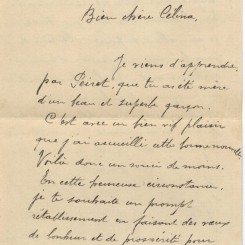 Bien chère Célina,
Je viens d'apprendre,
par Peiret, que tu as été mère
d'un beau et superbe garçon.
C'est avec un bien vif plaisir
que j'ai accueilli cette bonne nouvelle.
Voilà donc un souci de moins.
En cette heureuse circonstance,
je te souhaite un prompt
rétablissement en faisant des vœux
de bonheur et de prospérité pour